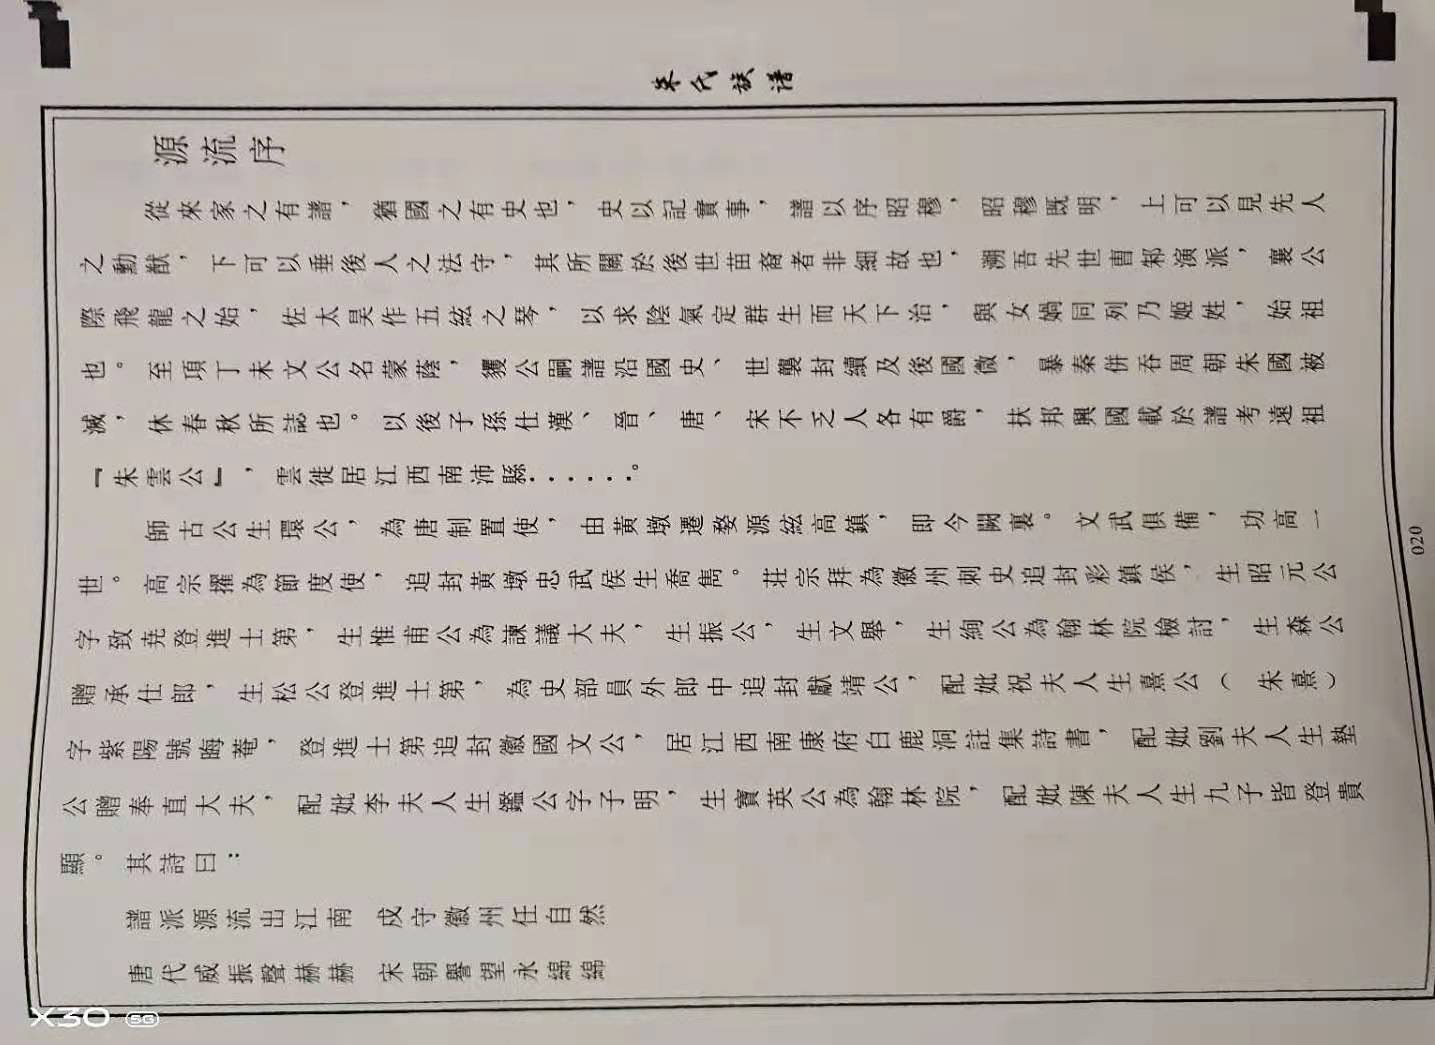 朱氏族谱
源流序
從來家之有譜，猶國之有史也，史以記實事，譜以序昭穆，昭穆既明，上可以見先人
之勳猷，下可以垂後人之法守，其所關於後世苗裔者非細故也，溯吾先世曹邾演派，襄公
際飛龍之始，佐太昊作五絃之琴，以求陰氣定群生而天下治，與女媧同列乃姬姓，始祖
也。至項丁未文公名蒙蔭，獲公嗣譜沿國史、世襲封續及後國微，暴秦併吞周朝朱國被
滅，休春秋所誌也。以後子孫仕漢、晉、唐、宋不乏人各有爵，扶邦興國載於譜考遠祖
『朱雲公』，雲徙居江西南沛縣......。
師古公生環公，為唐制置使，由黃墩遷婺源絃高鎮，即今闕裏。文武俱備，功高一
世。高宗擢為節度使，追封黃墩忠武侯生喬雋。莊宗拜為徽州刺史追封彩鎮侯，生昭元公
字致堯登進士第，生惟甫公為諫議大夫，生振公，生文舉，生絢公為翰林院檢討，生森公
贈承仕郎，生松公登進士第，為史部員外郎中追封獻靖公，配妣祝夫人生熹公（朱熹）
字紫陽號晦菴，登進士第追封徽國文公，居江西南康府白鹿洞註集詩書，配妣劉夫人生塾
公贈奉直大夫，配妣李夫人生鑑公字子明，生寶英公為翰林院，配妣陳夫人生九子皆登貴
顯。其詩曰：
譜派源流出江南 戍守徽州任自然
唐代威振聲赫赫 宋朝譽望永綿綿
020
X30 5G